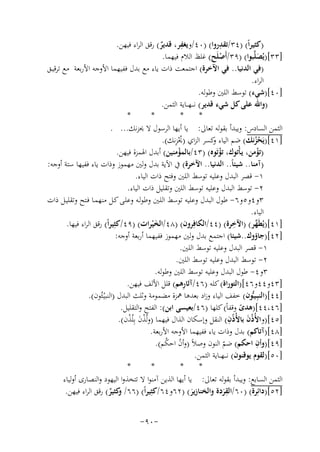 (كثيراً) (٣٤/تقدِروا) (٤٠/ويغفِر، قديرٌ) رقق الراء فيهن.
[٣٣](يُصَلَّبوا) (٣٩/أَصْلَح) غلظ اللام فيهما.
(في الدنيا.. في الآخرة) اجتمعت ذات ياء مع بدل ففيهما الأوجه الأربعة مع ترقيق
الراء.
[٤٠](شيء) توسط اللين وطوله.
(والله على كل شيء قدير) نـهـايـة الثمن.
* * * *
الثمن السادس: ويبدأ بقوله تعالى: يا أيها الرسول لا يحزنك... .
[٤١](يَحْزُنْكَ) ضم الياء وكسر الزاي (يُحْزِنكَ).
(تؤمن، يأتوك، تؤتوه) (٤٣/بالمؤمنين) أبدل الهمزة فيهن.
(آمنا.. شيئاً.. الدنيا.. الآخرة) في الآية بدل ولين مهموز وذات ياء ففيها ستة أوجه:
١- قصر البدل وعليه توسط اللين وفتح ذات الياء.
٢- توسط البدل وعليه توسط اللين وتقليل ذات الياء.
٣و٤و٥و٦- طول البدل وعليه توسط اللين وطوله وعلى كل منهما فتح وتقليل ذات
الياء.
[٤١](يُطَهِّر) (الآخِرة) (٤٤/الكافِرون) (٤٨/الخَيْرات) (٤٩/كثِيراً) رقق الراء فيها.
[٤٢](جاؤوك..شيئا) اجتمع بدل ولين مهموز ففيهما أربعة أوجه:
١- قصر البدل وعليه توسط اللين.
٢- توسط البدل وعليه توسط اللين.
٣و٤- طول البدل وعليه توسط اللين وطوله.
[٤٣و٤٤و٤٦](التوراة) كله (٤٦/آثارهم) قلل الألف فيهن.
[٤٤](النبيُّون) خفف الياء وزاد بعدها همزة مضمومة وثلث البدل (النبيئون).
[٤٤،٤٦](هدىً وقفاً) كلها (٤٦/بعيسى ابن): الفتح والتقليل.
[٤٥](والأُذُنَ بالأُذُنِ) النقل وإسكان الذال فيهما (وَلُذْنَ بِلُذْنِ).
[٤٨](آتاكم) بدل وذات ياء ففيهما الأوجه الأربعة.
[٤٩](وأنِ احكم) ضمّ النون وصلاً (وأنُ احكُم).
[٥٠](لقوم يوقنون) نـهـايـة الثمن.
* * * *
الثمن السابع: ويبدأ بقوله تعالى: يا أيها الذين آمنوا لا تتخذوا اليهود والنصارى أولياء
[٥٢](دائِرة) (٦٠/القِرَدة والخنازِير) (٦٢و٦٤/كثِيراً) (٦٦/ وكثِيرٌ) رقق الراء فيهن.
-٩٠-